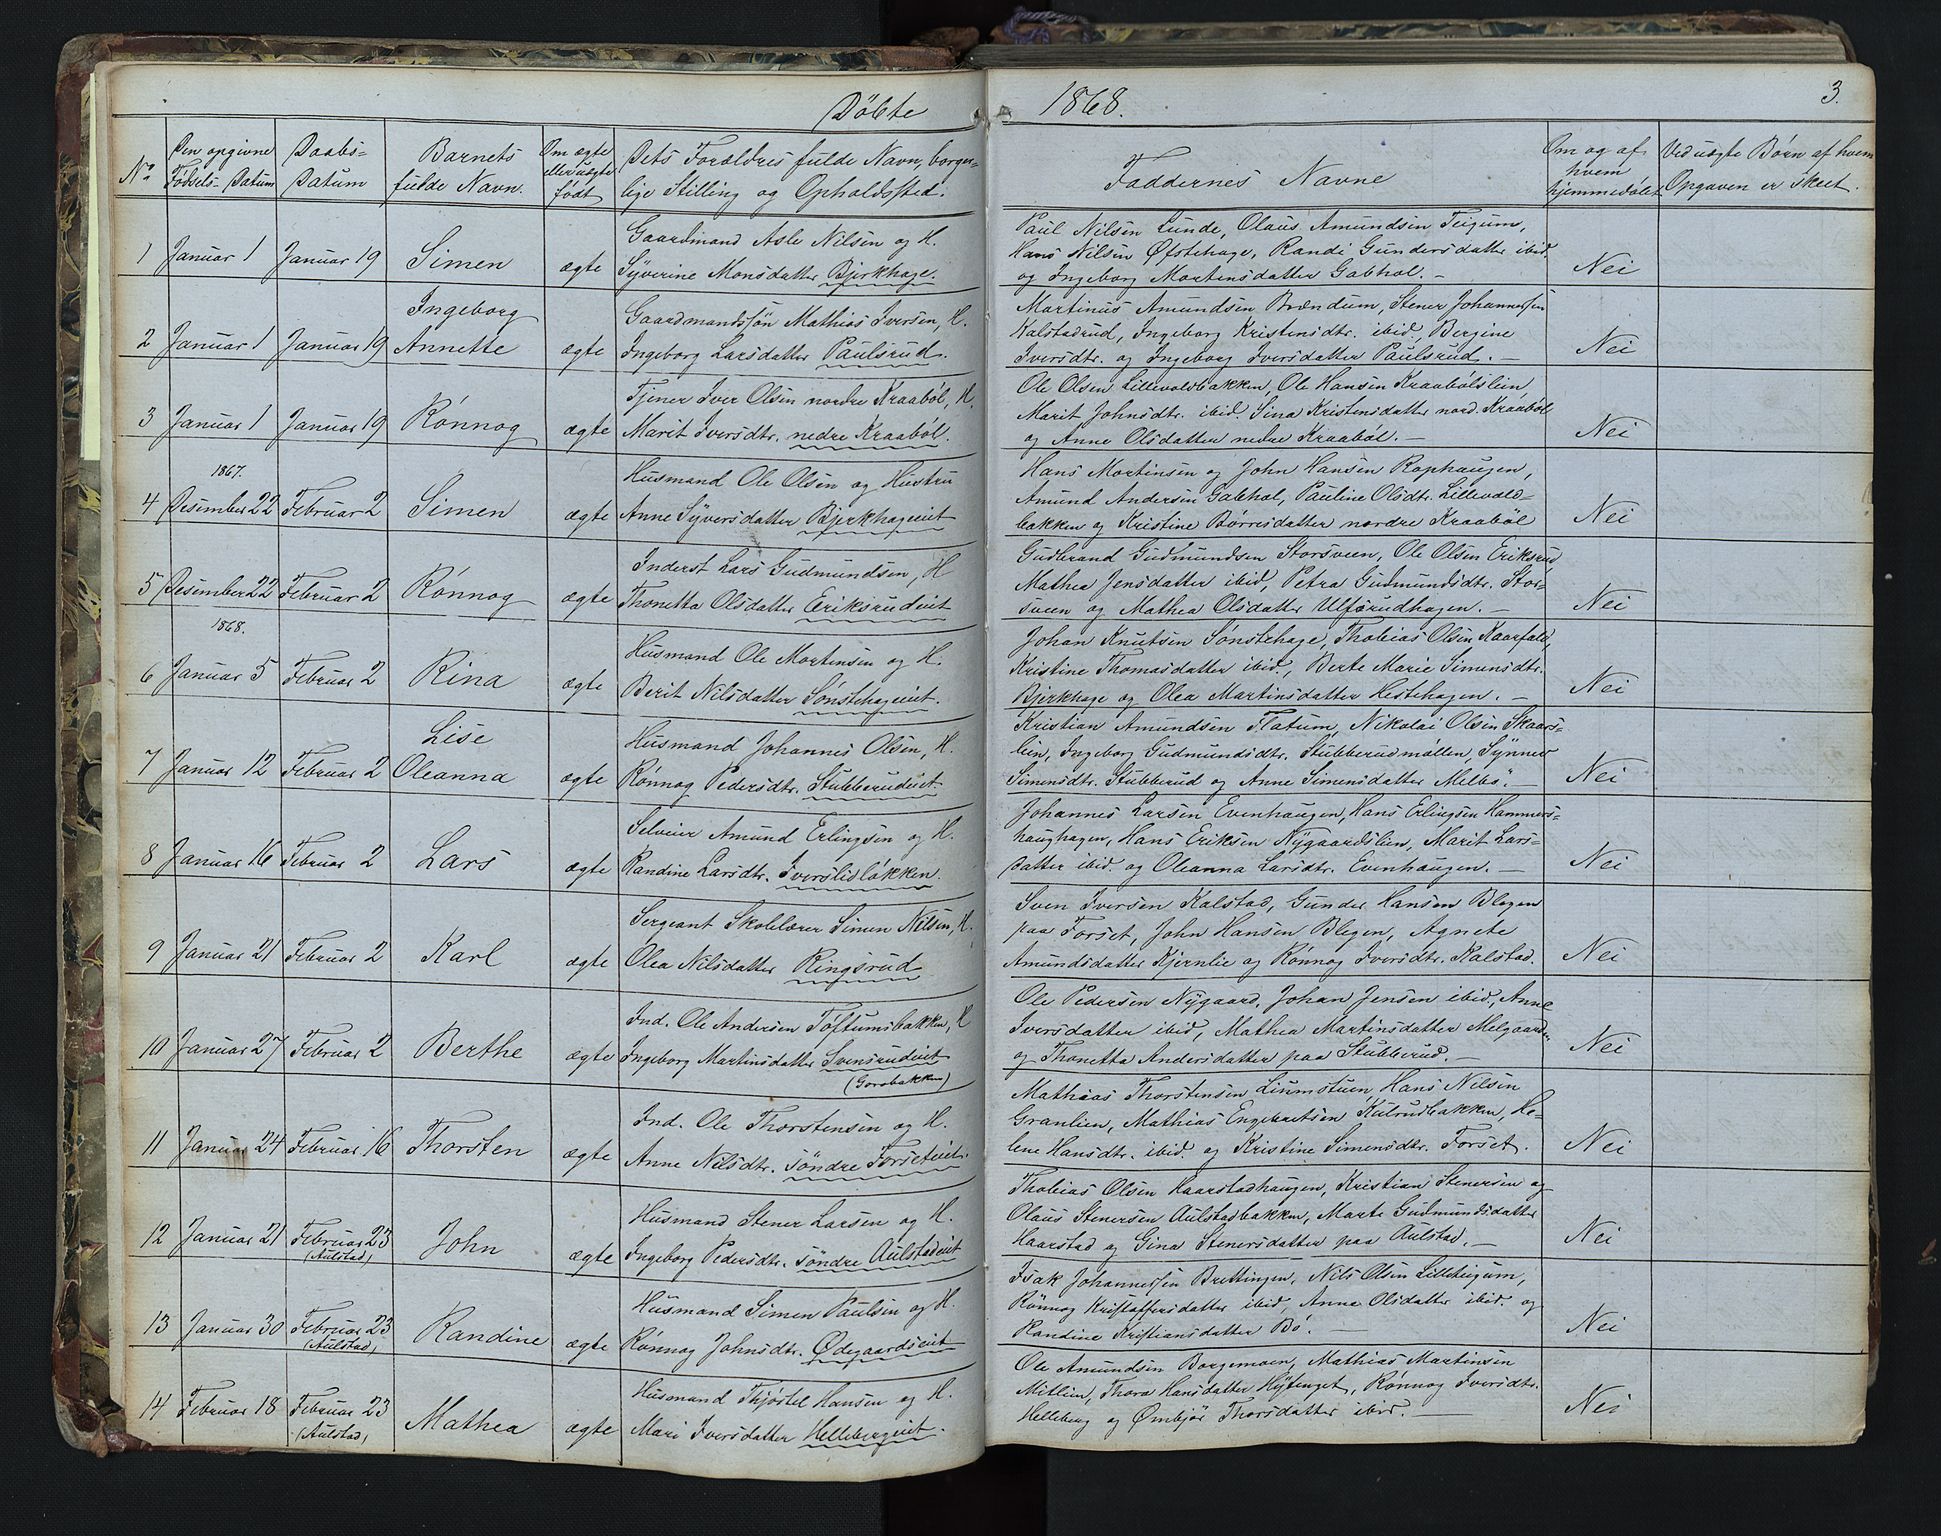 Döbte
1868.
3.
No
Den opgivne Födsels-Datum
Daabs-Datum
Barnets fulde Navn.
Om ægte eller uægte födt
Dets Forældres fulde Navn, borgerlige Stilling og Opholdssted.
Faddernes Navne
Om og af hvem hjemmedöbt
Ved uægte Börn af hvem Opgaven er skeet.
1 Januar 1 Januar 19 Simen ægte
Gaardmand Asle Nilsen og H.
Syverine Monsdatter Bjerkhage.
Paul Nilsen Lunde, Olaus Amundsen Teigum,
Hans Nilsen Öfstehage, Randi Gundersdatter ibid.
og Ingeborg Mortensdatter Gabhol. —
Nei
2 Januar 1 Januar 19 Ingeborg
Annette ægte
Gaardmandssön Mathias Iversen, H.
Ingeborg Larsdatter Paulsrud.
Martinus Amundsen Brændum, Stener Johannessen
Kalstadrud, Ingeborg Kristensdtr. ibid, Bergine
Iversdtr. og Ingeborg Iversdatter Paulsrud. —
Nei
3 Januar 1 Januar 19 Rönnog ægte
Tjener Iver Olsen nordre Kraaböl, H.
Marit Iversdtr. nedre Kraaböl.
Ole Olsen Lillevoldbakken, Ole Hansen Kraabölslien
Marit Johnsdtr. ibid. Sina Kristensdatter nord. Kraaböl
og Anne Olsdatter nedre Kraaböl. —
Nei
1867.
4 Desember 22 Februar 2 Simen ægte
Husmand Ole Olsen og Hustru
Anne Syversdatter Bjerkhageeiet
Hans Mortensen og John Hansen Rophaugen,
Amund Andersen Gabhol, Pauline Olsdtr. Lillevold-
bakken og Kristine Börresdatter nordre Kraaböl
Nei
5 Desember 22 Februar 2 Rönnog ægte
Inderst Lars Gudmundsen, H
Thonetta Olsdatter Eriksrudeiet
Gudbrand Gudmundsen Storsveen, Ole Olsen Eriksrud
Mathea Jensdatter ibid, Petra Gudmundsdtr. Stor-
sveen og Mathea Olsdatter Ulfsrudhagen. —
Nei
1868.
6 Januar 5 Februar 2 Rina ægte
Husmand Ole Mortensen og H.
Berit Nilsdatter Sönstehageeiet.
Johan Knutsen Sönstehage, Thobias Olsen Kaarfald,
Kristine Thomasdatter ibid., Berte Marie Simensdtr.
Bjerkhage og Olea Martinsdatter Hestehagen. —
Nei
7 Januar 12 Februar 2 Lise
Oleanna ægte
Husmand Johannes Olsen, H.
Rönnog Pedersdtr. Stubberudeiet
Kristian Amundsen Flatum, Nikolai Olsen Skaars-
lien, Ingeborg Gudmundsdtr. Stubberudmöllen, Synnev
Simensdtr. Stubberud og Anne Simensdatter Melbö. —
Nei
8 Januar 16 Februar 2 Lars ægte
Selveier Amund Erlingsen og H.
Randine Larsdtr. Iverslislökken.
Johannes Larsen Evenhaugen, Hans Erlingsen Hammers-
haughagen, Hans Eriksen Nygaardslien, Marit Lars-
datter ibid. og Oleanna Larsdtr. Evenhaugen. —
Nei
9 Januar 21 Februar 2 Karl ægte
Sergeant Skolelærer Simen Nilsen, H.
Olea Nilsdatter Ringsrud
Sven Iversen Kalstad, Gunder Hansen Blegen
paa Forset, John Hansen Blegen, Agnete
Amundsdatter Kjernlie og Rönnog Iversdtr. Kalstad.
Nei
10 Januar 27 Februar 2 Berthe ægte
Ind. Ole Andersen Töftumsbakken, H
Ingeborg Martinsdatter Svensrudeiet
(Gorobakken)
Ole Pedersen Nygaard, Johan Jensen ibid, Anne
Iversdatter ibid, Mathea Martinsdatter Melgaarden
og Thonetta Andersdatter paa Stubberud. —
Nei
11 Januar 24 Februar 16 Thorsten ægte
Ind. Ole Thorstensen og H.
Anne Nilsdtr. söndre Forseteiet.
Mathias Thorstensen Liumstuen, Hans Nilsen
Granlien, Mathias Engebretsen Kulrudbakken, He-
lene Hansdtr. ibid og Kristine Simensdtr. Forset.
Nei
12 Januar 21 Februar 23
(Aulstad) John ægte
Husmand Stener Larsen og H.
Ingeborg Pedersdtr. söndre Aulstadeiet
Thobias Olsen Haarstadhaugen, Kristian Stenersen og
Olaus Stenersen Aulstadbakken, Marte Gudmundsdatter
Haarstad og Gina Stenersdatter paa Aulstad. —
Nei
13 Januar 30 Februar 23
(Aulstad) Randine ægte
Husmand Simen Paulsen og H.
Rönnog Johnsdtr. Ödegaardseiet
Isak Johannessen Brettingen, Nils Olsen Lilleteigum,
Rönnog Kristoffersdatter ibid, Anne Olsdatter ibid. og
Randine Kristiansdatter Bö. —
Nei
14 Februar 18 Februar 23
(Aulstad) Mathea ægte
Husmand Thjöstel Hansen og H.
Mari Iversdatter Hellebergeiet.
Ole Amundsen Borgemoen, Mathias Martinsen
Mitlien, Thora Hansdatter Hytenget, Rönnog Iversdtr.
Helleberg og Ömbjör Thorsdatter ibid. —
Nei